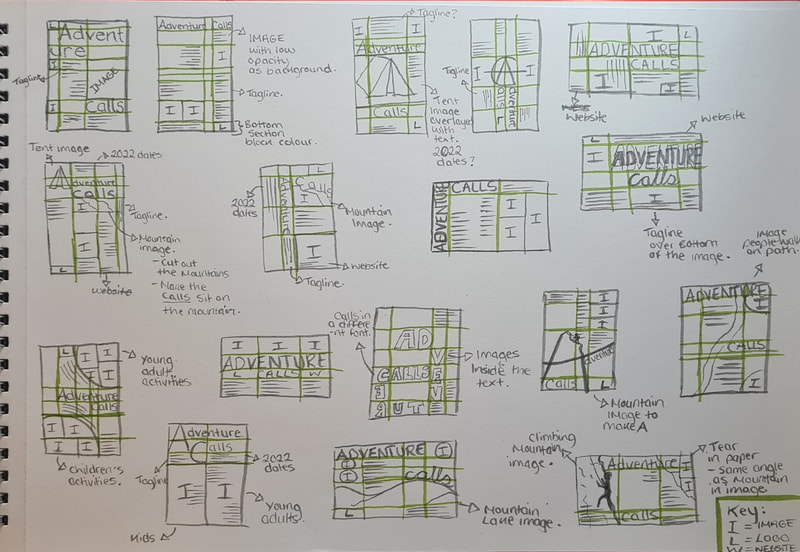 Advent
ure
I
Tagline
IMAGE
I
Calls
Adventure Calls
I
I I
L
IMAGE
with low
opacity
as background.
Tagline.
Bottom
Section
block colour.
Tagline?
I
I
Adventure
Calls
L
Tent
image
overlayed
with
text.
2022
dates?
Tagline
I
I
A
dventure
Calls
L
I
L
ADVENTURE
CALLS
I
I
Website
Website
I
ADVENTURE
Calls
L
I
Tagline
over Bottom
of the image.
Tent image
2022 dates
Adventure
Calls
I
I
L
Tagline.
Mountain
image.
- Cut out
the Mountains
- Make the
Calls Sit on
the mountain.
Website
2022
dates
L
Adventure
Calls
I
I
Mountain
Image.
Website
Tagline.
ADVENTURE
CALLS
I
I
I
Image
people walking
on path.
ADVENTURE
I
CALLS
I
L
L
I I
I
Adventure
Calls
I I
I I
Young
adult
activities
Children's
activities.
I I I
ADVENTURE
L CALLS W
Calls in
a different
font.
AD
VE
CALLS
Images
Inside the
text.
I
I
I
dventure
Calls
L
Mountain
Image to
make A
Adventure
Calls
Tagline
I
I
2022
dates
Young
adults.
Kids
ADVENTURE
I
I
I
Calls
L
Mountain
Lake image.
Climbing
Mountain
image.
Adventure
I
I
Calls
L
Tear
in paper
- same angle
as Mountain
in image
Key:
I = IMAGE
L = LOGO
W = WEBSITE